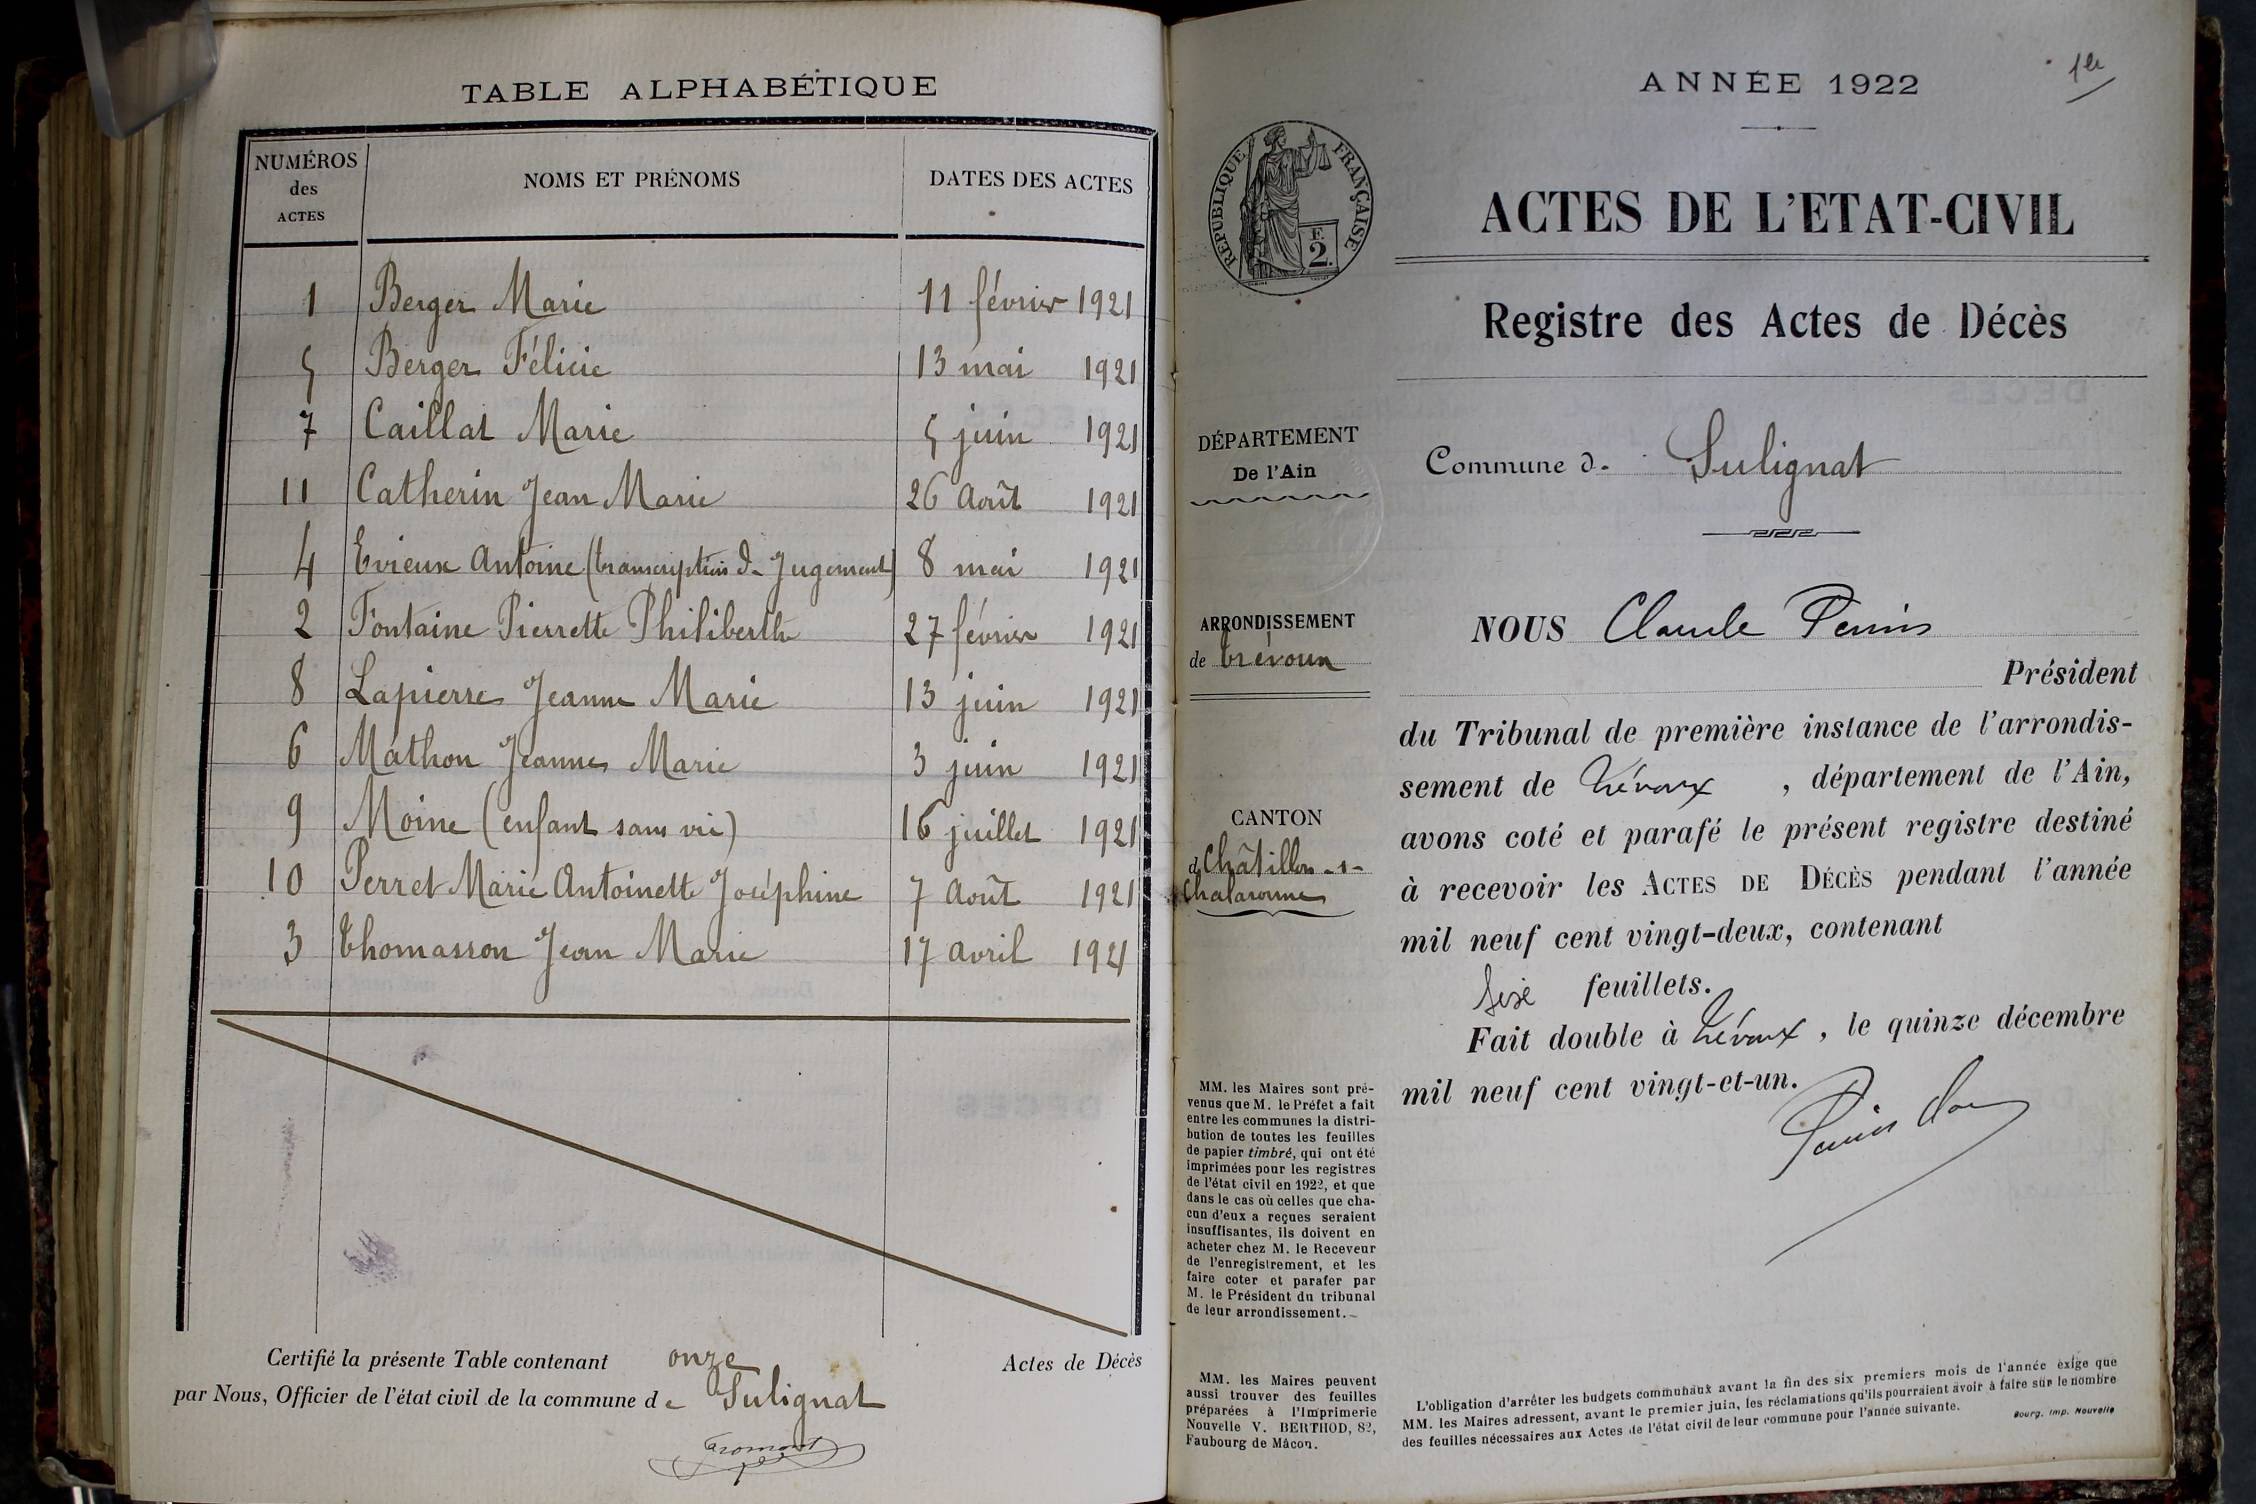 TABLE ALPHABÉTIQUE
NUMÉROS des ACTES | NOMS ET PRÉNOMS | DATES DES ACTES
1 Berger Marie 11 février 1921
5 Berger Félicie 13 mai 1921
7 Caillat Marie 5 juin 1921
11 Catherin Jean Marie 26 Août 1921
4 Evieux Antoine (transcription de Jugement) 8 mai 1921
2 Fontaine Pierrette Philiberthe 27 février 1921
8 Lapierre Jeanne Marie 13 juin 1921
6 Mathon Jeanne Marie 3 juin 1921
9 Moine (enfant sans vie) 16 juillet 1921
10 Perret Marie Antoinette Joséphine 7 Août 1921
3 Thomasson Jean Marie 17 avril 1921
Certifié la présente Table contenant onze Actes de Décès
par Nous, Officier de l'état civil de la commune de Sulignat
Fromont
1er
ANNÉE 1922
RÉPUBLIQUE FRANÇAISE
F.
2.
ACTES DE L'ETAT-CIVIL
Registre des Actes de Décès
DÉPARTEMENT
De l'Ain
Commune de Sulignat
ARRONDISSEMENT
de Trévoux
CANTON
de Châtillon-s-
Chalaronne
NOUS Claude Perrin
Président
du Tribunal de première instance de l'arrondis-
sement de Trévoux, département de l'Ain,
avons coté et parafé le présent registre destiné
à recevoir les ACTES DE DÉCÈS pendant l'année
mil neuf cent vingt-deux, contenant
feuillets.
Fait double à Trévoux, le quinze décembre
mil neuf cent vingt-et-un.
MM. les Maires sont pré-
venus que M. le Préfet a fait
entre les communes la distri-
bution de toutes les feuilles
de papier timbré, qui ont été
imprimées pour les registres
de l'état civil en 1922, et que
dans le cas où celles que cha-
cun d'eux a reçues seraient
insuffisantes, ils doivent en
acheter chez M. le Receveur
de l'enregistrement, et les
faire coter et parafer par
M. le Président du tribunal
de leur arrondissement.
MM. les Maires peuvent
aussi trouver des feuilles
préparées à l'Imprimerie
Nouvelle V. BERTHOD, 82,
Faubourg de Mâcon.
L'obligation d'arrêter les budgets communaux avant la fin des six premiers mois de l'année exige que
MM. les Maires adressent, avant le premier juin, les réclamations qu'ils pourraient avoir à faire sur le nombre
des feuilles nécessaires aux Actes de l'état civil de leur commune pour l'année suivante.
Bourg. Imp. Nouvelle